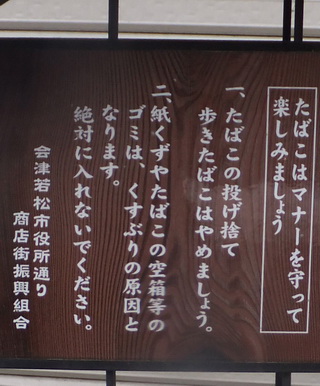 たばこはマナーを守って
楽しみましょう
一、たばこの投げ捨て
歩きたばこはやめましょう。
二、紙くずやたばこの空箱等の
ゴミは、くすぶりの原因と
なります。
絶対に入れないでください。
会津若松市役所通り
商店街振興組合